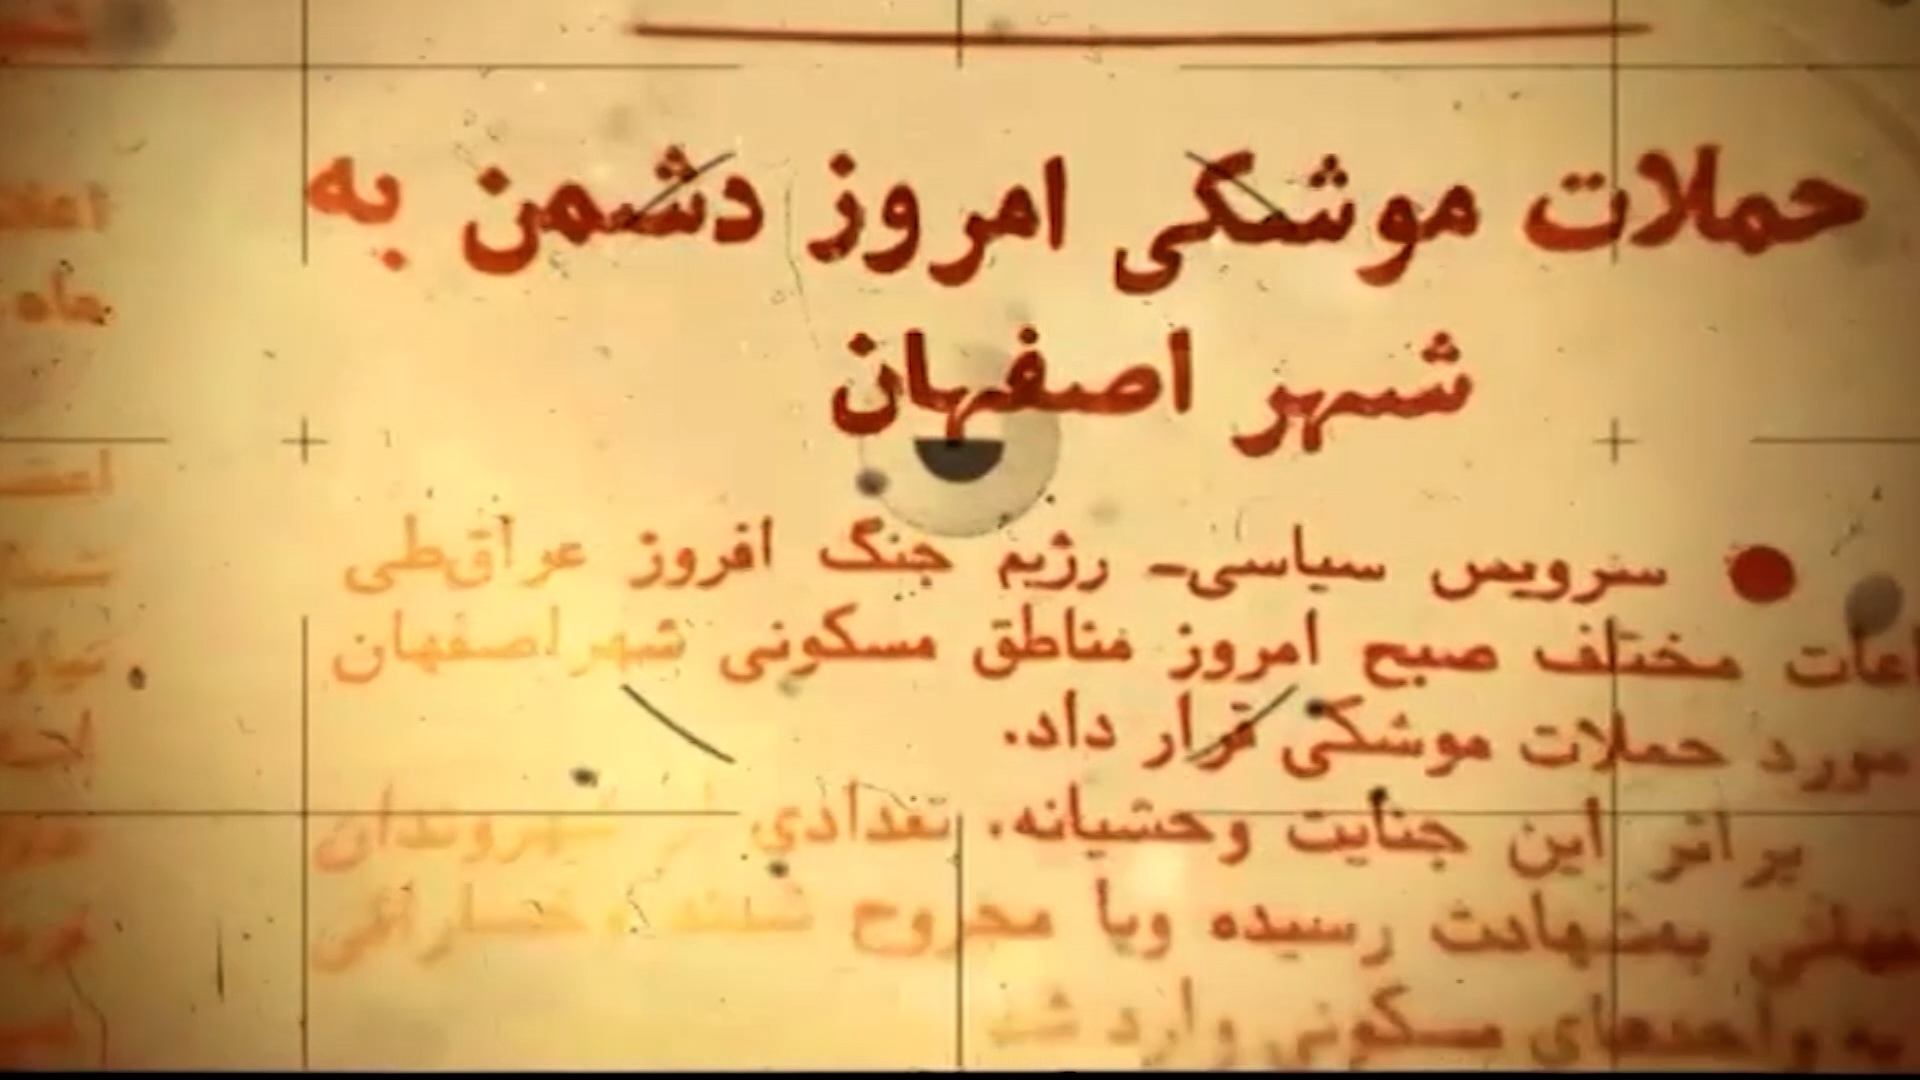 حملات موشکی امروز دشمن به
شهر اصفهان
● سرویس سیاسی- رژیم جنگ افروز عراق‌طی
اعات مختلف صبح امروز مناطق مسکونی شهر اصفهان
مورد حملات موشکی قرار داد.
بر اثر این جنایت وحشیانه، تعدادی از شهروندان
بشهادت رسیده ویا مجروح شدند و خساراتی
به واحدهای مسکونی وارد شد